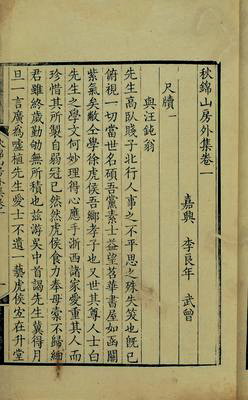 秋錦山房外集卷一
嘉興 李良年 武曾
尺牘一
與汪鈍翁
先生高臥賤子北行人事之不平思之殊失笑也旣已
俯視一切當世名碩吾黨素士益望苕華書屋如函關
紫氣矣敝仝學徐虎侯吾鄉孝子也又世其尊人士白
先生之學文何妙理得心應手浙西諸家愛重其人而
珍惜其所製自弱冠已然然虎侯食力奉母橐不歸
君雖終歲勤劬無所積也茲游吳中首謁先生冀得月
旦一言廣爲噓植先生愛士不遺一藝虎侯定在升堂